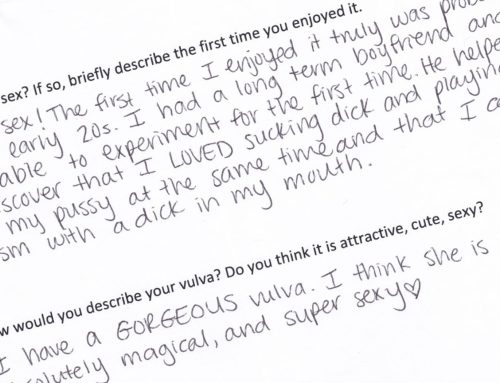 sex? If so, briefly describe the first time you enjoyed it.
sex! The first time I enjoyed it truly was
early 20s. I had a long term boyfriend
able to experiment for the first time. He
that I LOVED sucking dick and
my pussy at the same time and that I
with a dick in my mouth.
would you describe your vulva? Do you think it is attractive, cute, sexy?
I have a GORGEOUS vulva. I think she is
magical, and super sexy♡